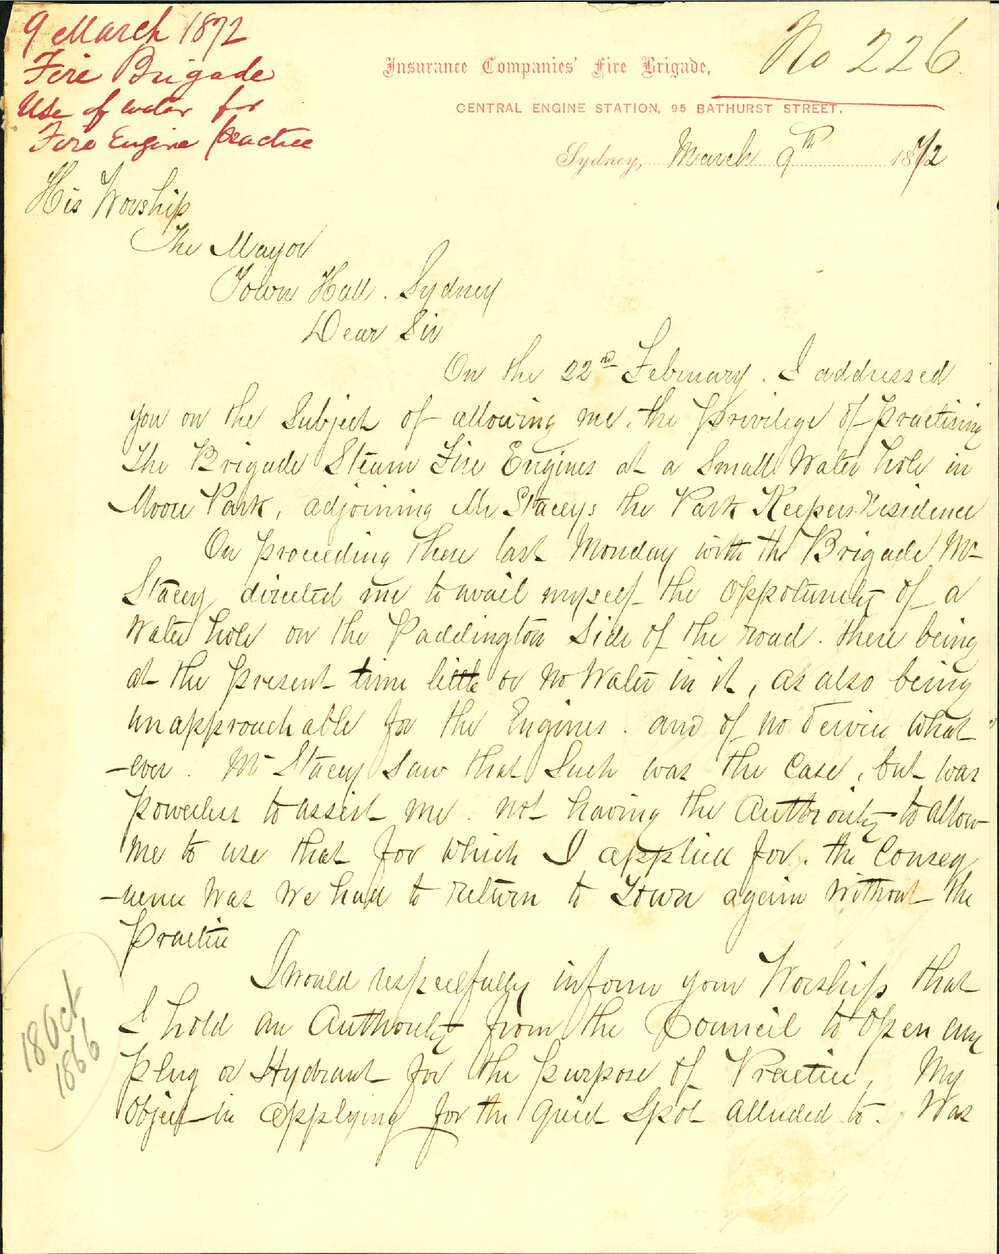 9 March 1872
Fire Brigade
Use of water for
Fire Engine Practice
No 226.
Insurance Companies' Fire Brigade,
CENTRAL ENGINE STATION, 95 BATHURST STREET.
Sydney, March 9th 1872
His Worship
The Mayor
Town Hall. Sydney
Dear Sir
On the 22nd February. I addressed
you on the Subject of allowing me, the privilege of practising
the Brigade Steam Fire Engines at a Small Water hole in
Moore Park, adjoining Mr Staceys the Park Keepers Residence
On proceeding there last Monday with the Brigade Mr
Stacey directed me to avail myself the oppotunity of a
Water hole on the Paddington Side of the road. there being
at the present time little or no Water in it, as also being
unapproachable for the Engines. and of no Service what
-ever. Mr Stacey Saw that Such was the Case, but was
powerless to assist me. not having the Authority to allow
me to use that for which I applied for. the Conseq
-uence Was We had to return to Town again Without the
practice
I would respecfully inform your Worship that
I hold an Authority from the Council to open any
plug or Hydrant for the purpose of Practice, My
object in applying for the quiet Spot alluded to. Was
18 Oct
1866